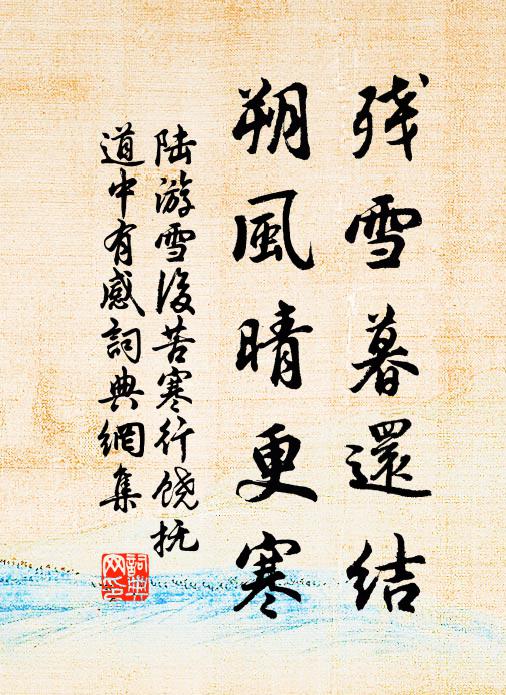 残雪暮還结
朔風晴更寒
陆游雪後苦寒行饶抚
道中有感詞典網集
詞典网